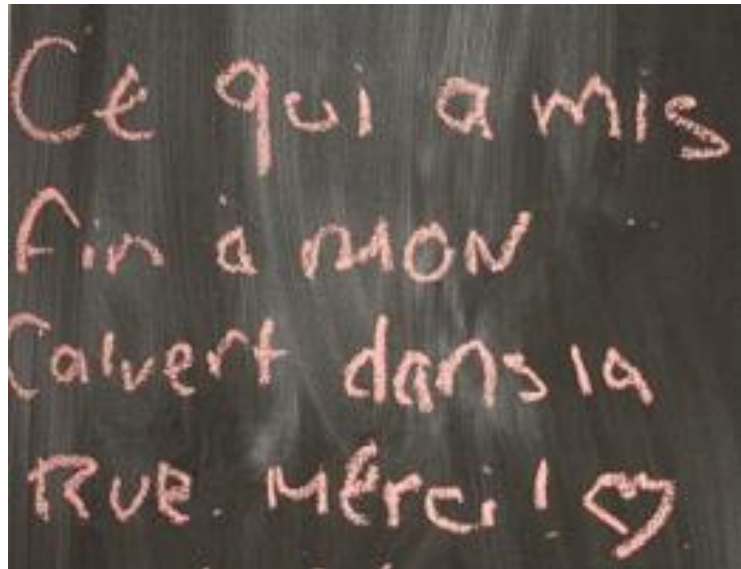 Ce qui a mis
fin à mon
Calvert dans la
Rue. Mérci! ♡